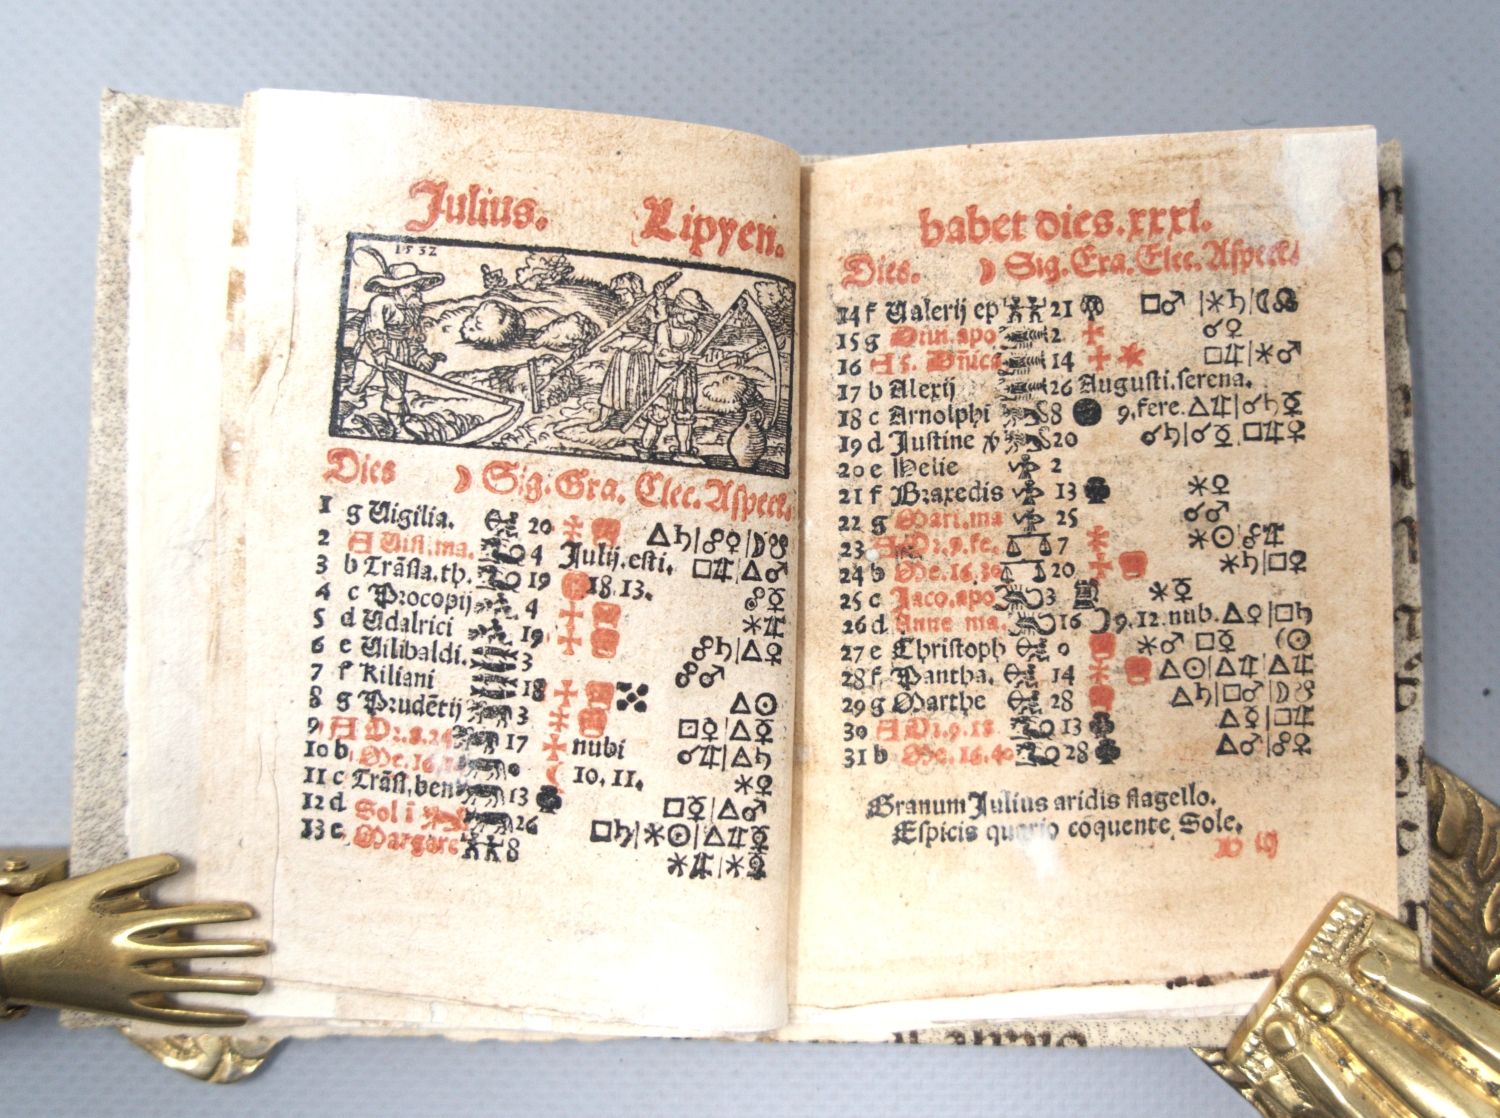 Julius. Lipyen.
1532
Dies ☽ Sig. Gra. Elec. Aspect.
1 g Uigilia. 20 △♄|☍♀|☽☋
2 A Uisi. ma. 4 Julij. esti. □♃|△♂
3 b Trãsla. th. 19 18. 13. ☍☿
4 c Procopij 4 ✶♃
5 d Udalrici 19 ☍♄|△♀
6 e Uilibaldi. 3 ☍♂
7 f Kiliani 18 △☉
8 g Prudẽtij 3 □♀|△☿
9 A D 2. 8. 24 17 nubi ☌♃|△♄
10 b 10. 11. ✶♀
11 c Trãsl. ben 13 □☿|△♂
12 d Sol ĩ 26 □♄|✶☉|△♃☿
13 e Margare 8 ✶♃|✶♀
habet dies. xxxi.
Dies. ☽ Sig. Gra. Elec. Aspect
14 f Ualerij ep 21 □♂ |✶♄|☾☊
15 g 2. ☌♀
16 A 5. Dñica 14 □♃|✶♂
17 b Alexij 26 Augusti. serena.
18 c Arnolphi 8 9, fere. △♃|☌♄☿
19 d Justine 20 ☌♄|☌☿, □♃♀
20 e Helie 2
21 f Braxedis 13 ✶♀
22 g Mari. ma 25 ☌♂
23 A D 2. 9. fe. 7 ✶☉|☍♃
24 b Me. 16. 30 20 ✶♄|□♀
25 c Jaco. apo 3 ✶☿
26 d Anne ma. 16 9. 12. nub. △♀|□♄
27 e Christoph 0 ✶♂ □☿ (☉
28 f Pantha. 14 △☉|△♃|△♃
29 g Marthe 28 △♄|□♂|☽☋
30 A D 2. 9. 18 13 △☿|□♃
31 b Me. 16. 40 28 △♂|☍♀
Granum Julius aridis flagello.
Espicis coquente Sole.